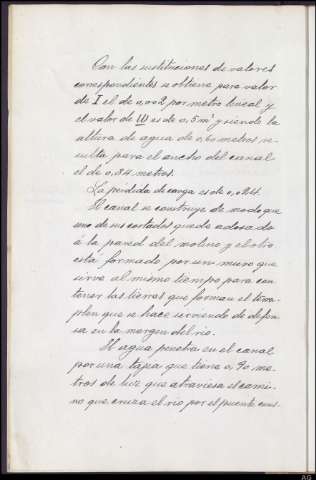 Con las instituciones de valores
correspondientes se obtiene para valor
de I el de 0,002 por metro lineal y
el valor de W es de 0,5 m² y siendo la
altura de agua de 0,60 metros re-
sulta para el ancho del canal
el de 0,84 metros.
La perdida de carga es de 0,024.
El canal se construye de modo que
uno de sus costados quede adosado
á la pared del molino y el otro
está formado por un muro que
sirve al mismo tiempo para con-
tener las tierras que forman el terra-
plen que se hace sirviendo de defen-
sa en la margen del rio.
El agua penetra en el canal
por una tajea que tiene 0,90 me-
tros de luz que atraviesa el cami-
no que cruza el rio por el puente cons-
AG